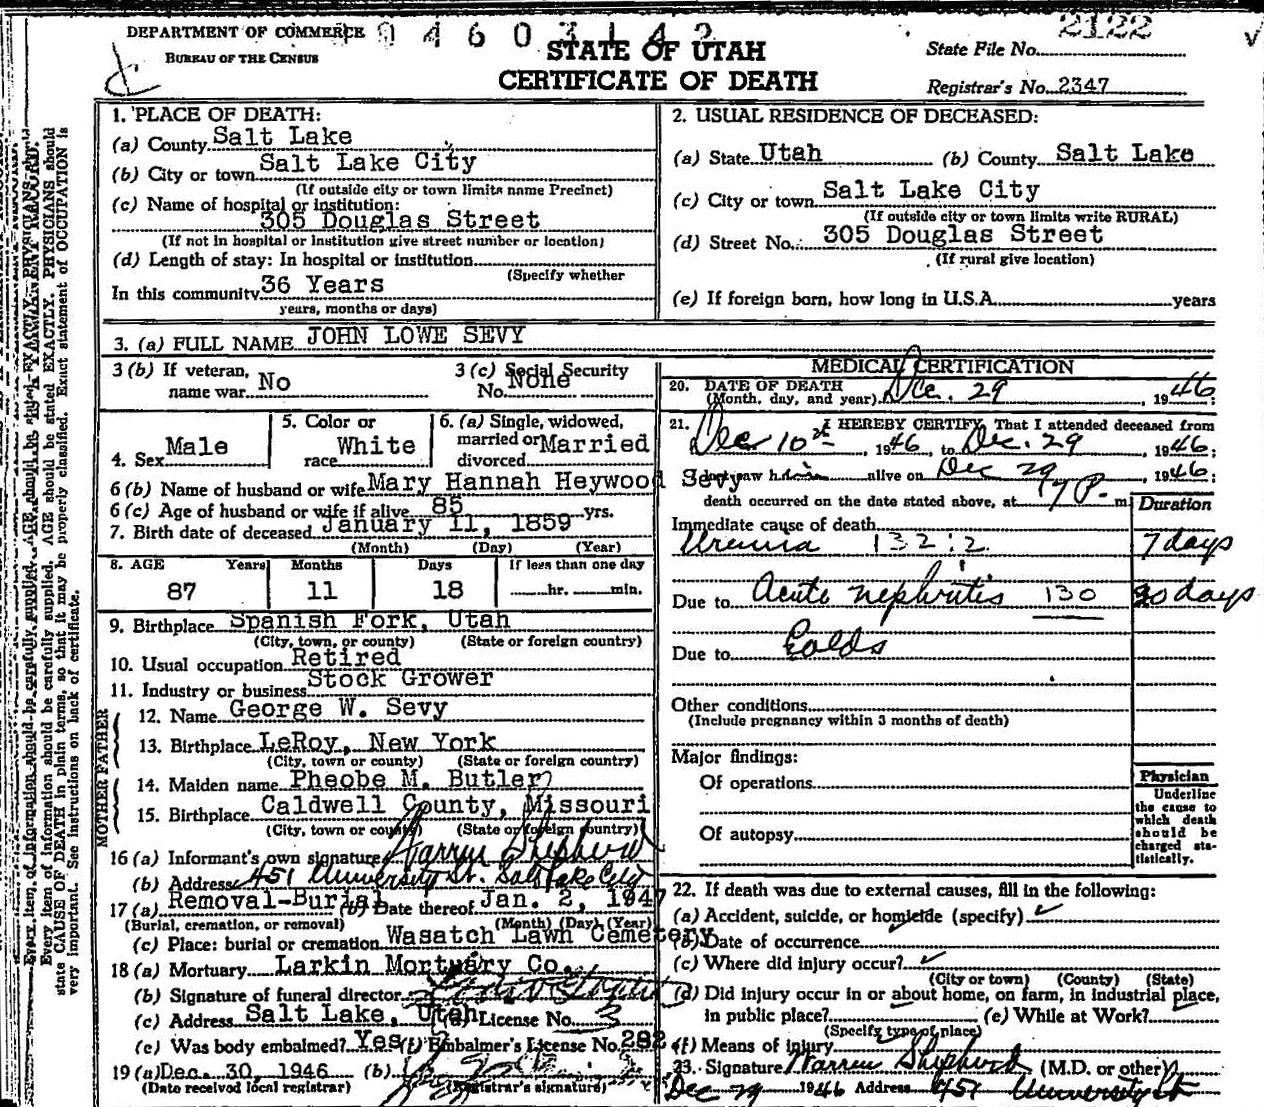 DEPARTMENT OF COMMERCE
BUREAU OF THE CENSUS
STATE OF UTAH
CERTIFICATE OF DEATH
2122
State File No.
Registrar's No. 2347
1. PLACE OF DEATH:
(a) County Salt Lake
(b) City or town Salt Lake City
(If outside city or town limits name Precinct)
(c) Name of hospital or institution:
305 Douglas Street
(If not in hospital or institution give street number or location)
(d) Length of stay: In hospital or institution
(Specify whether
In this community 36 Years
years, months or days)
2. USUAL RESIDENCE OF DECEASED:
(a) State Utah (b) County Salt Lake
(c) City or town Salt Lake City
(If outside city or town limits write RURAL)
(d) Street No. 305 Douglas Street
(If rural give location)
(e) If foreign born, how long in U.S.A. years
3. (a) FULL NAME JOHN LOWE SEVY
3 (b) If veteran, name war No
3 (c) Social Security No. None
4. Sex Male
5. Color or race White
6. (a) Single, widowed, married or divorced Married
6 (b) Name of husband or wife Mary Hannah Heywood Sevy
6 (c) Age of husband or wife if alive 85 yrs.
7. Birth date of deceased January 11, 1859
(Month) (Day) (Year)
8. AGE Years Months Days If less than one day
87 11 18 hr. min.
9. Birthplace Spanish Fork, Utah
(City, town, or county) (State or foreign country)
10. Usual occupation Retired
11. Industry or business Stock Grower
FATHER
12. Name George W. Sevy
13. Birthplace LeRoy, New York
(City, town or county) (State or foreign country)
MOTHER
14. Maiden name Pheobe M. Butler
15. Birthplace Caldwell County, Missouri
(City, town or county) (State or foreign country)
16 (a) Informant's own signature Warren Shepherd
(b) Address 451 University St. Salt Lake City
17 (a) Removal-Burial (b) Date thereof Jan. 2, 1947
(Burial, cremation, or removal) (Month) (Day) (Year)
(c) Place: burial or cremation Wasatch Lawn Cemetery
18 (a) Mortuary Larkin Mortuary Co.
(b) Signature of funeral director
(c) Address Salt Lake, Utah (d) License No. 3
(e) Was body embalmed? Yes (f) Embalmer's License No. 282
19 (a) Dec. 30, 1946 (b)
(Date received local registrar) (Registrar's signature)
MEDICAL CERTIFICATION
20. DATE OF DEATH
(Month, day, and year) Dec. 29, 1946
21. I HEREBY CERTIFY, That I attended deceased from
Dec 10th, 1946, to Dec. 29, 1946;
saw h alive on Dec 29, 1946;
death occurred on the date stated above, at 7 P. m.
Duration
Immediate cause of death
Uremia 132:2 7 days
Due to Acute nephritis 130 20 days
Due to Colds
Other conditions
(Include pregnancy within 3 months of death)
Major findings:
Of operations
Of autopsy
Physician
Underline
the cause to
which death
should be
charged sta-
tistically.
22. If death was due to external causes, fill in the following:
(a) Accident, suicide, or homicide (specify)
(b) Date of occurrence
(c) Where did injury occur?
(City or town) (County) (State)
(d) Did injury occur in or about home, on farm, in industrial place,
in public place? (e) While at Work?
(Specify type of place)
(f) Means of injury
23. Signature Warren Shepherd (M.D. or other)
Dec 29 1946 Address 451 University St
Every item of information should be carefully supplied. AGE should be stated EXACTLY. PHYSICIANS should
state CAUSE OF DEATH in plain terms, so that it may be properly classified. Exact statement of OCCUPATION is
very important. See instructions on back of certificate.